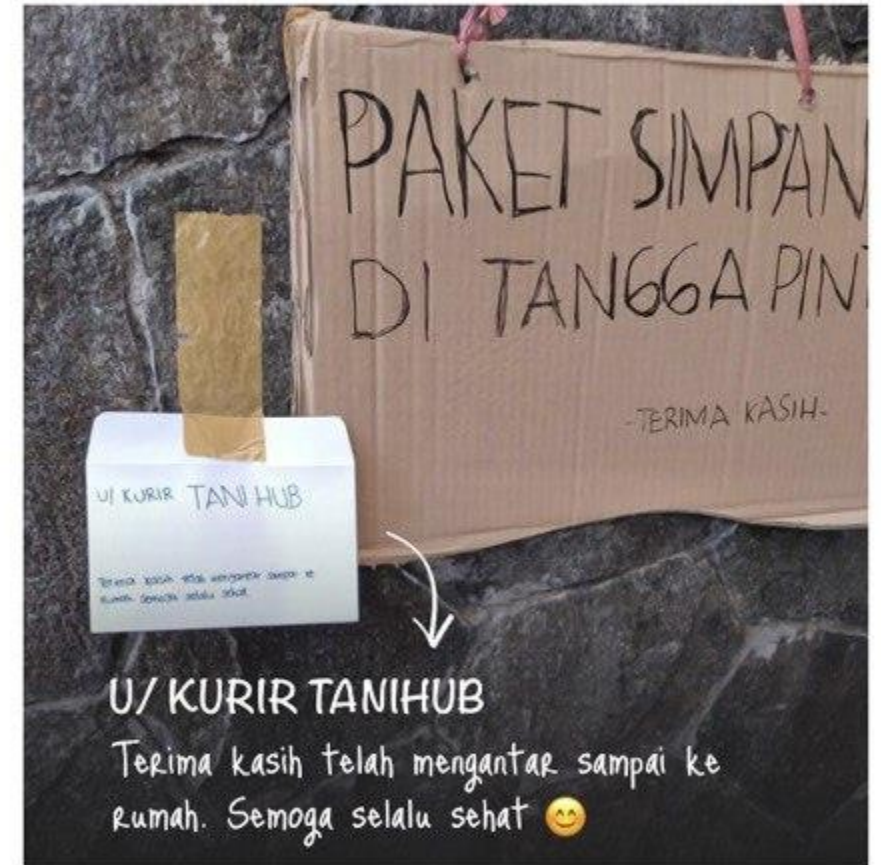 PAKET SIMPAN
DI TANGGA PINT
-TERIMA KASIH-
U/ KURIR TANI HUB
Terima kasih telah mengantar sampai ke
rumah. Semoga selalu sehat
U/ KURIR TANIHUB
Terima kasih telah mengantar sampai ke
rumah. Semoga selalu sehat 😊